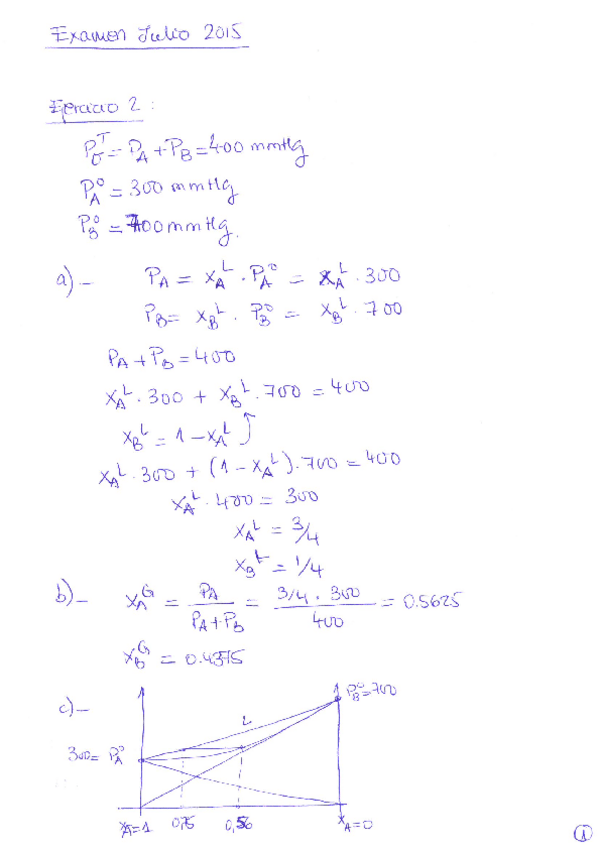 Examen Julio 2015
Ejercicio 2:
P_σ^T = P_A + P_B = 400 mmHg
P_A^o = 300 mmHg
P_B^o = 700 mmHg.
a)- P_A = x_A^L · P_A^o = x_A^L · 300
P_B = x_B^L · P_B^o = x_B^L · 700
P_A + P_B = 400
x_A^L · 300 + x_B^L · 700 = 400
x_B^L = 1 - x_A^L
x_A^L · 300 + (1 - x_A^L) · 700 = 400
x_A^L · 400 = 300
x_A^L = 3/4
x_B^L = 1/4
b)- x_A^G = P_A / (P_A + P_B) = (3/4 · 300) / 400 = 0.5625
x_B^G = 0.4375
c)- L P_B^o = 700
300 = P_A^o
x_A = 1 0,75 0,56 x_A = 0
1